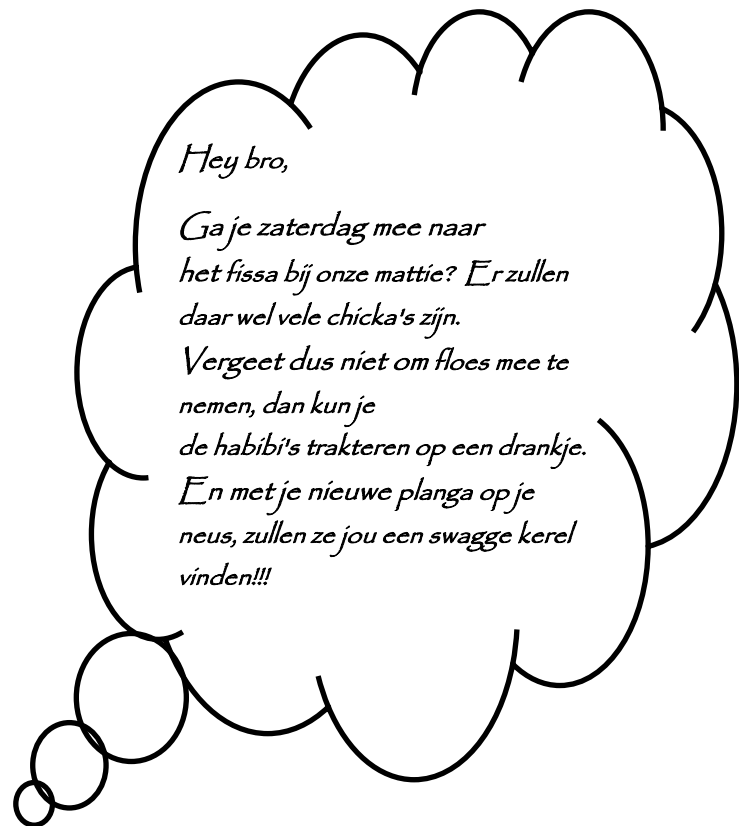 Hey bro,
Ga je zaterdag mee naar
het fissa bij onze mattie?  Er zullen
daar wel vele chicka's zijn.
Vergeet dus niet om floes mee te
nemen, dan kun je
de habibi's trakteren op een drankje.
En met je nieuwe planga op je
neus, zullen ze jou een swagge kerel
vinden!!!